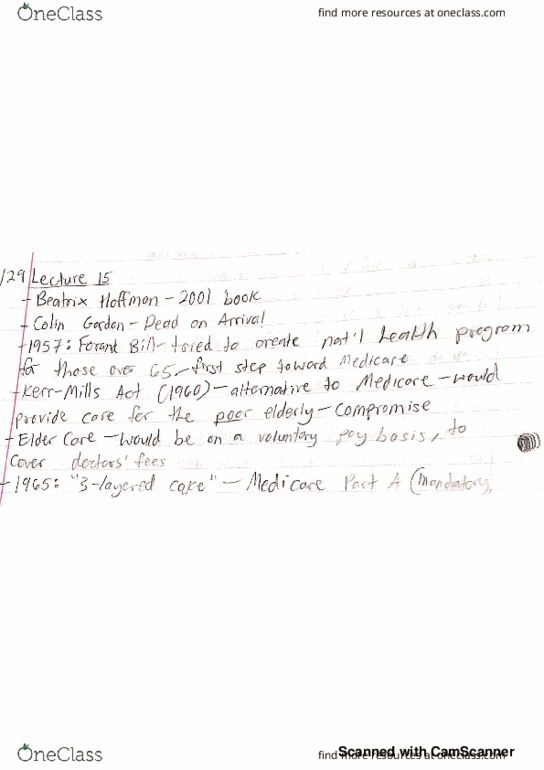 OneClass
find more resources at oneclass.com
/29 Lecture 15
- Beatrix Hoffman - 2001 book
- Colin Gordon - Dead on Arrival
- 1957: Forand Bill - tried to create nat'l health program
for those over 65 - first step toward Medicare
- Kerr-Mills Act (1960) - alternative to Medicare - would
provide care for the poor elderly - compromise
- Elder Care - would be on a voluntary pay basis, to
cover doctors' fees
- 1965: "3-layered cake" - Medicare Part A (Mandatory,
OneClass
find more resources at oneclass.com
Scanned with CamScanner